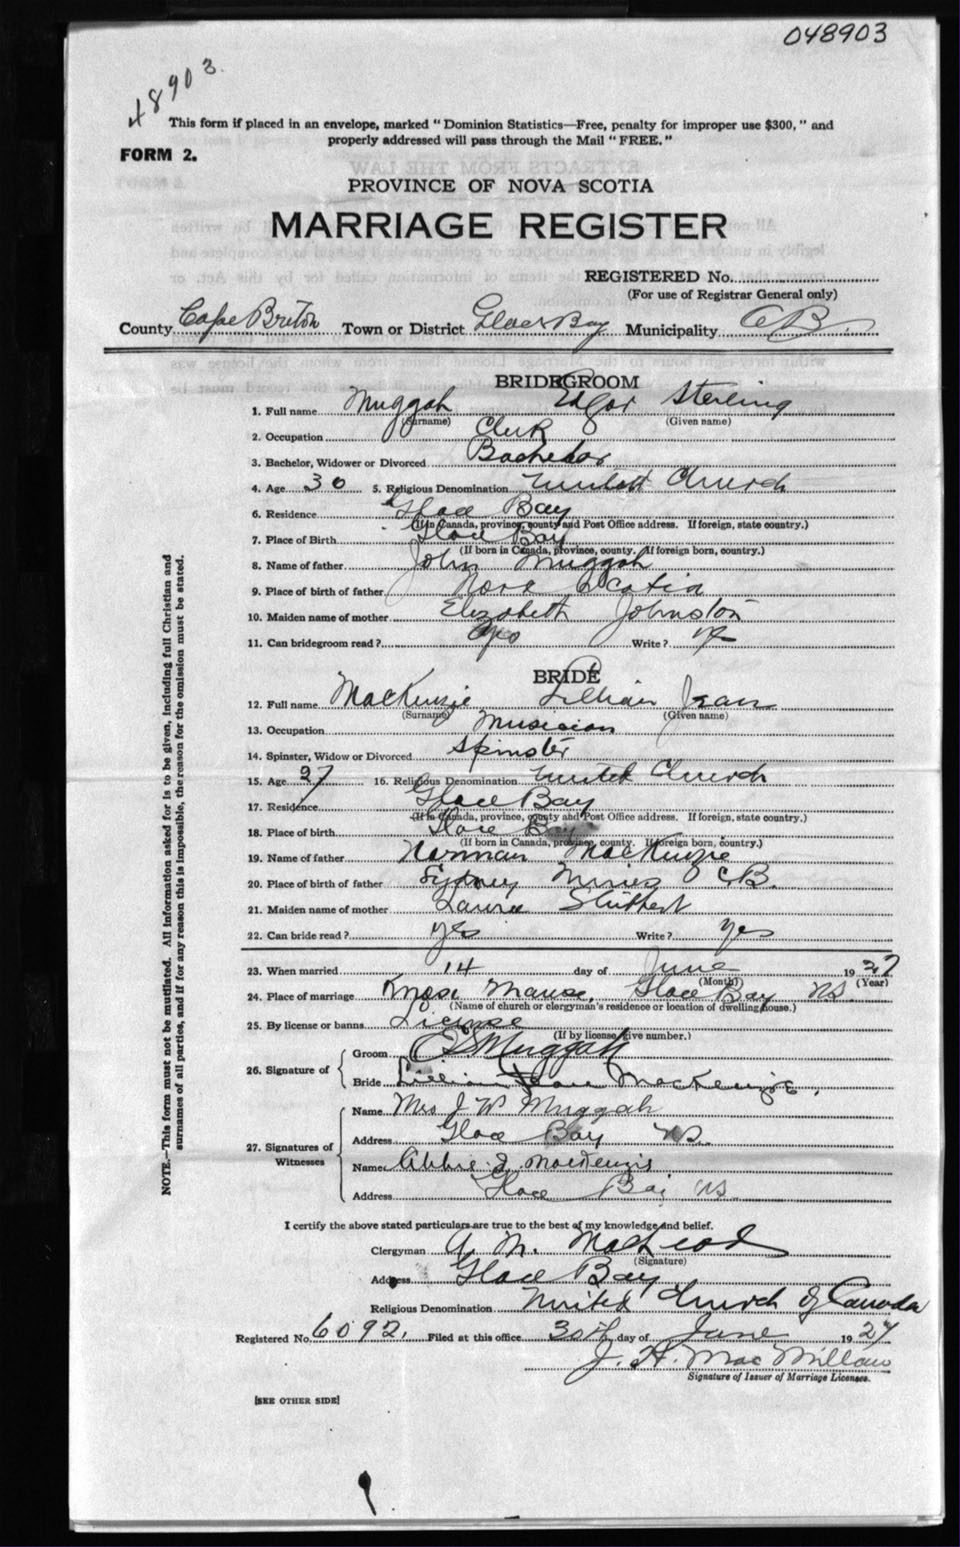 048903
48903.
This form if placed in an envelope, marked " Dominion Statistics—Free, penalty for improper use $300, " and
properly addressed will pass through the Mail " FREE. "
FORM 2.
PROVINCE OF NOVA SCOTIA
MARRIAGE REGISTER
REGISTERED No.
(For use of Registrar General only)
County Cape Breton Town or District Glace Bay Municipality C B.
BRIDEGROOM
1. Full name Muggah Edgar Sterling
(Surname) (Given name)
2. Occupation Clerk
3. Bachelor, Widower or Divorced Bachelor
4. Age 30 5. Religious Denomination United Church
6. Residence Glace Bay
(If in Canada, province, county and Post Office address. If foreign, state country.)
7. Place of Birth Glace Bay
(If born in Canada, province, county. If foreign born, country.)
8. Name of father John Muggah
9. Place of birth of father Nova Scotia
10. Maiden name of mother Elizabeth Johnston
11. Can bridegroom read? yes Write?
BRIDE
12. Full name MacKenzie Lillian Jean
(Surname) (Given name)
13. Occupation Musician
14. Spinster, Widow or Divorced Spinster
15. Age 27 16. Religious Denomination United Church
17. Residence Glace Bay
(If in Canada, province, county and Post Office address. If foreign, state country.)
18. Place of birth Glace Bay
(If born in Canada, province, county. If foreign born, country.)
19. Name of father Norman MacKenzie
20. Place of birth of father Sydney Mines C.B.
21. Maiden name of mother Laura
22. Can bride read? yes Write? yes
23. When married 14 day of June 1927
(Month) (Year)
24. Place of marriage Knox Manse, Glace Bay NS.
(Name of church or clergyman's residence or location of dwelling house.)
25. By license or banns License
(If by license give number.)
26. Signature of
Groom E S Muggah
Bride Lillian Jean MacKenzie.
27. Signatures of Witnesses
Name Mrs J W Muggah
Address Glace Bay NS.
Name Abbie J. MacKenzie
Address Glace Bay NS.
I certify the above stated particulars are true to the best of my knowledge and belief.
Clergyman A. M. MacLeod
(Signature)
Address Glace Bay
Religious Denomination United Church of Canada
Registered No. 6092. Filed at this office 30th day of June 1927
J. H. MacMillan
Signature of Issuer of Marriage Licenses.
[SEE OTHER SIDE]
NOTE.—This form must not be mutilated. All information asked for is to be given, including full Christian and
surnames of all parties, and if for any reason this is impossible, the reason for the omission must be stated.